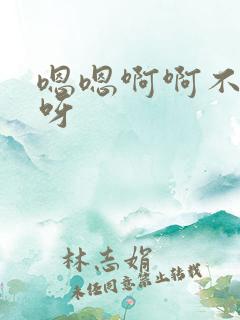 嗯嗯啊啊不
呀
林志娟
未经同意禁止转载